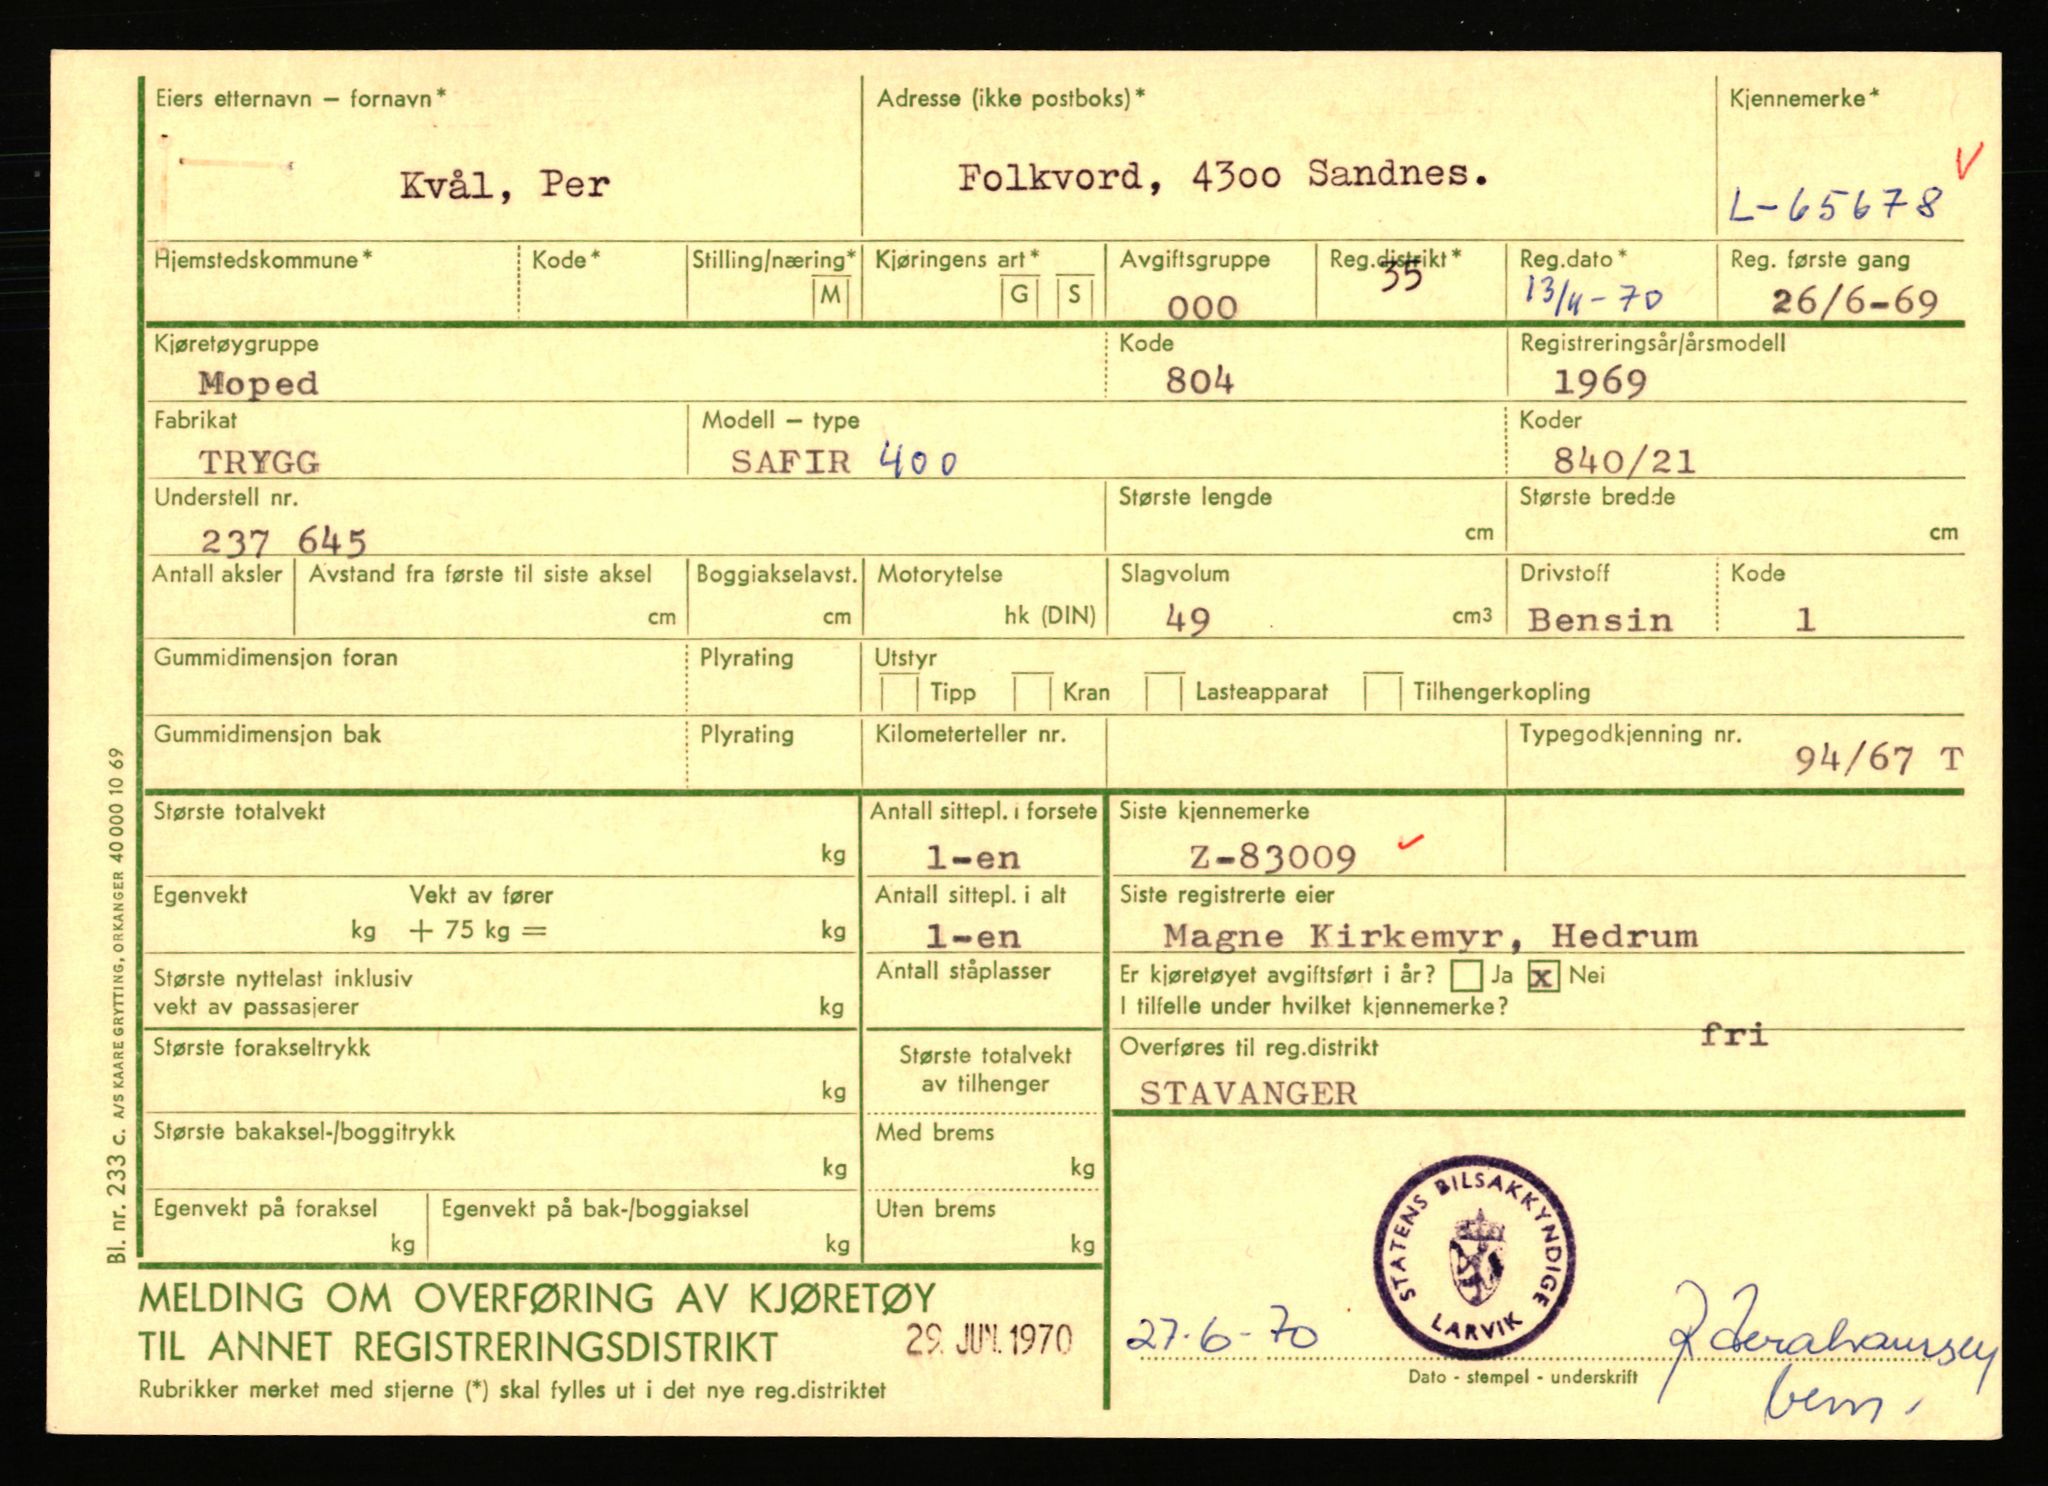 Eiers etternavn – fornavn*
Adresse (ikke postboks)*
Kjennemerke*
Kvål, Per
Folkvord, 4300 Sandnes.
V
L-65678
Hjemstedskommune*
Kode*
Stilling/næring*
M
Kjøringens art*
G
S
Avgiftsgruppe
000
Reg.distrikt*
35
Reg.dato*
13/4-70
Reg. første gang
26/6-69
Kjøretøygruppe
Moped
Kode
804
Registreringsår/årsmodell
1969
Fabrikat
TRYGG
Modell – type
SAFIR 400
Koder
840/21
Understell nr.
237 645
Største lengde
cm
Største bredde
cm
Antall aksler
Avstand fra første til siste aksel
cm
Boggiakselavst.
cm
Motorytelse
hk (DIN)
Slagvolum
49 cm3
Drivstoff
Bensin
Kode
1
Gummidimensjon foran
Plyrating
Utstyr
Tipp
Kran
Lasteapparat
Tilhengerkopling
Gummidimensjon bak
Plyrating
Kilometerteller nr.
Typegodkjenning nr.
94/67 T
Største totalvekt
kg
Antall sittepl. i forsete
1-en
Siste kjennemerke
Z-83009
Egenvekt
kg
Vekt av fører
+ 75 kg =
kg
Antall sittepl. i alt
1-en
Siste registrerte eier
Magne Kirkemyr, Hedrum
Største nyttelast inklusiv
vekt av passasjerer
kg
Antall ståplasser
Er kjøretøyet avgiftsført i år? Ja x Nei
I tilfelle under hvilket kjennemerke?
fri
Største forakseltrykk
kg
Største totalvekt
av tilhenger
Overføres til reg.distrikt
STAVANGER
Største bakaksel-/boggitrykk
kg
Med brems
kg
Egenvekt på foraksel
kg
Egenvekt på bak-/boggiaksel
kg
Uten brems
kg
STATENS BILSAKKYNDIGE
LARVIK
MELDING OM OVERFØRING AV KJØRETØY
TIL ANNET REGISTRERINGSDISTRIKT
29. JUN. 1970
27-6-70
Dato - stempel - underskrift
Rubrikker merket med stjerne (*) skal fylles ut i det nye reg.distriktet
Bl. nr. 233 c. A/S KAARE GRYTTING, ORKANGER 40000 10 69